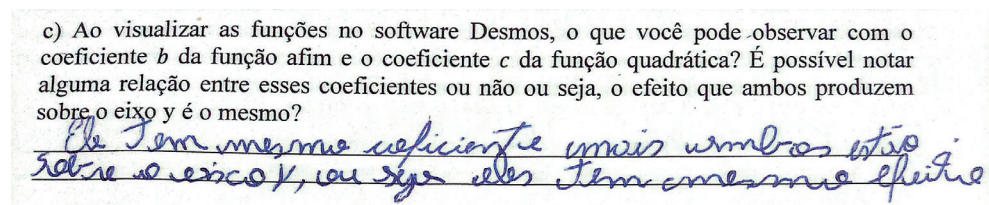 c) Ao visualizar as funções no software Desmos, o que você pode observar com o
coeficiente b da função afim e o coeficiente c da função quadrática? É possível notar
alguma relação entre esses coeficientes ou não ou seja, o efeito que ambos produzem
sobre o eixo y é o mesmo?
Ele Tem mesmo coeficiente mais ambos estão
sobre o eixo y, ou seja eles Tem o mesmo efeito